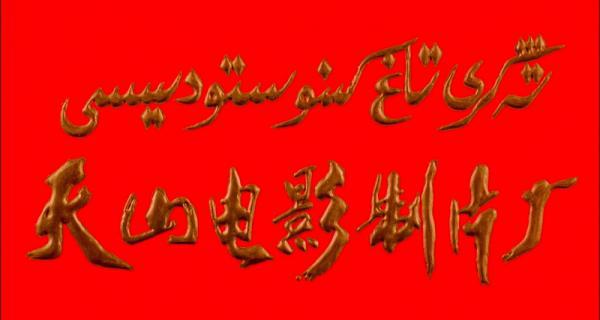 تەڭرى تاغ كىنو ستودىيىسى
天山电影制片厂